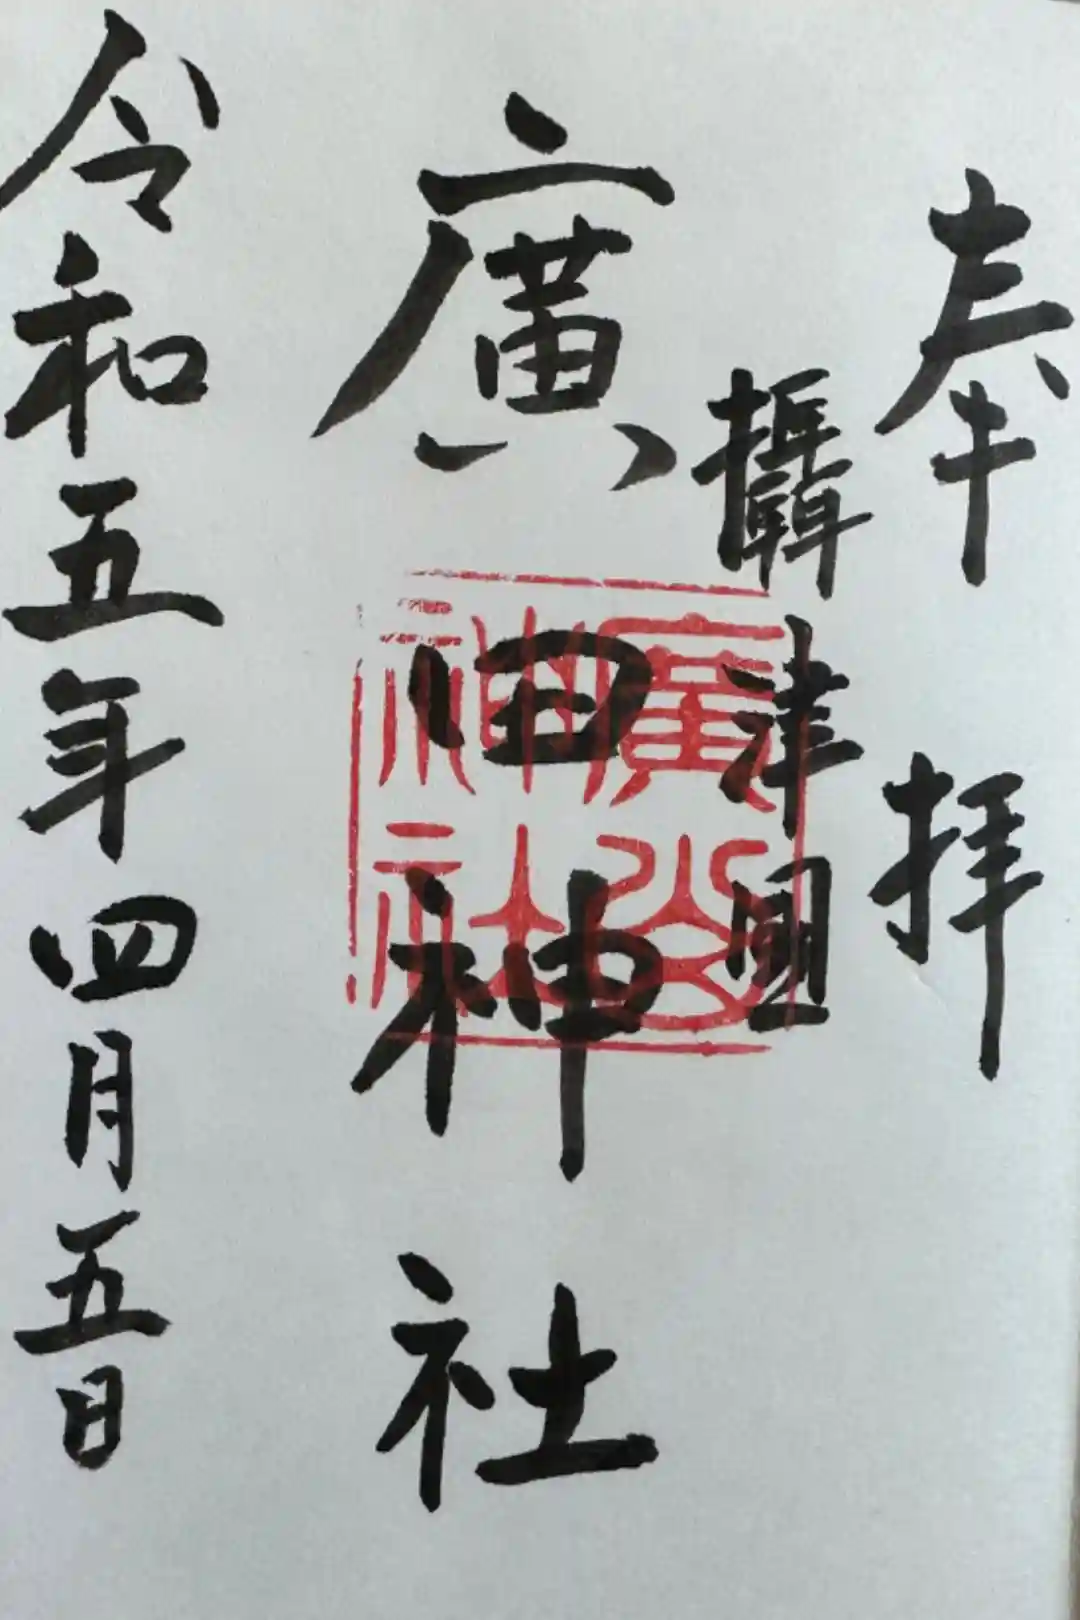 奉拝
攝津國
廣田神社
令和五年四月五日